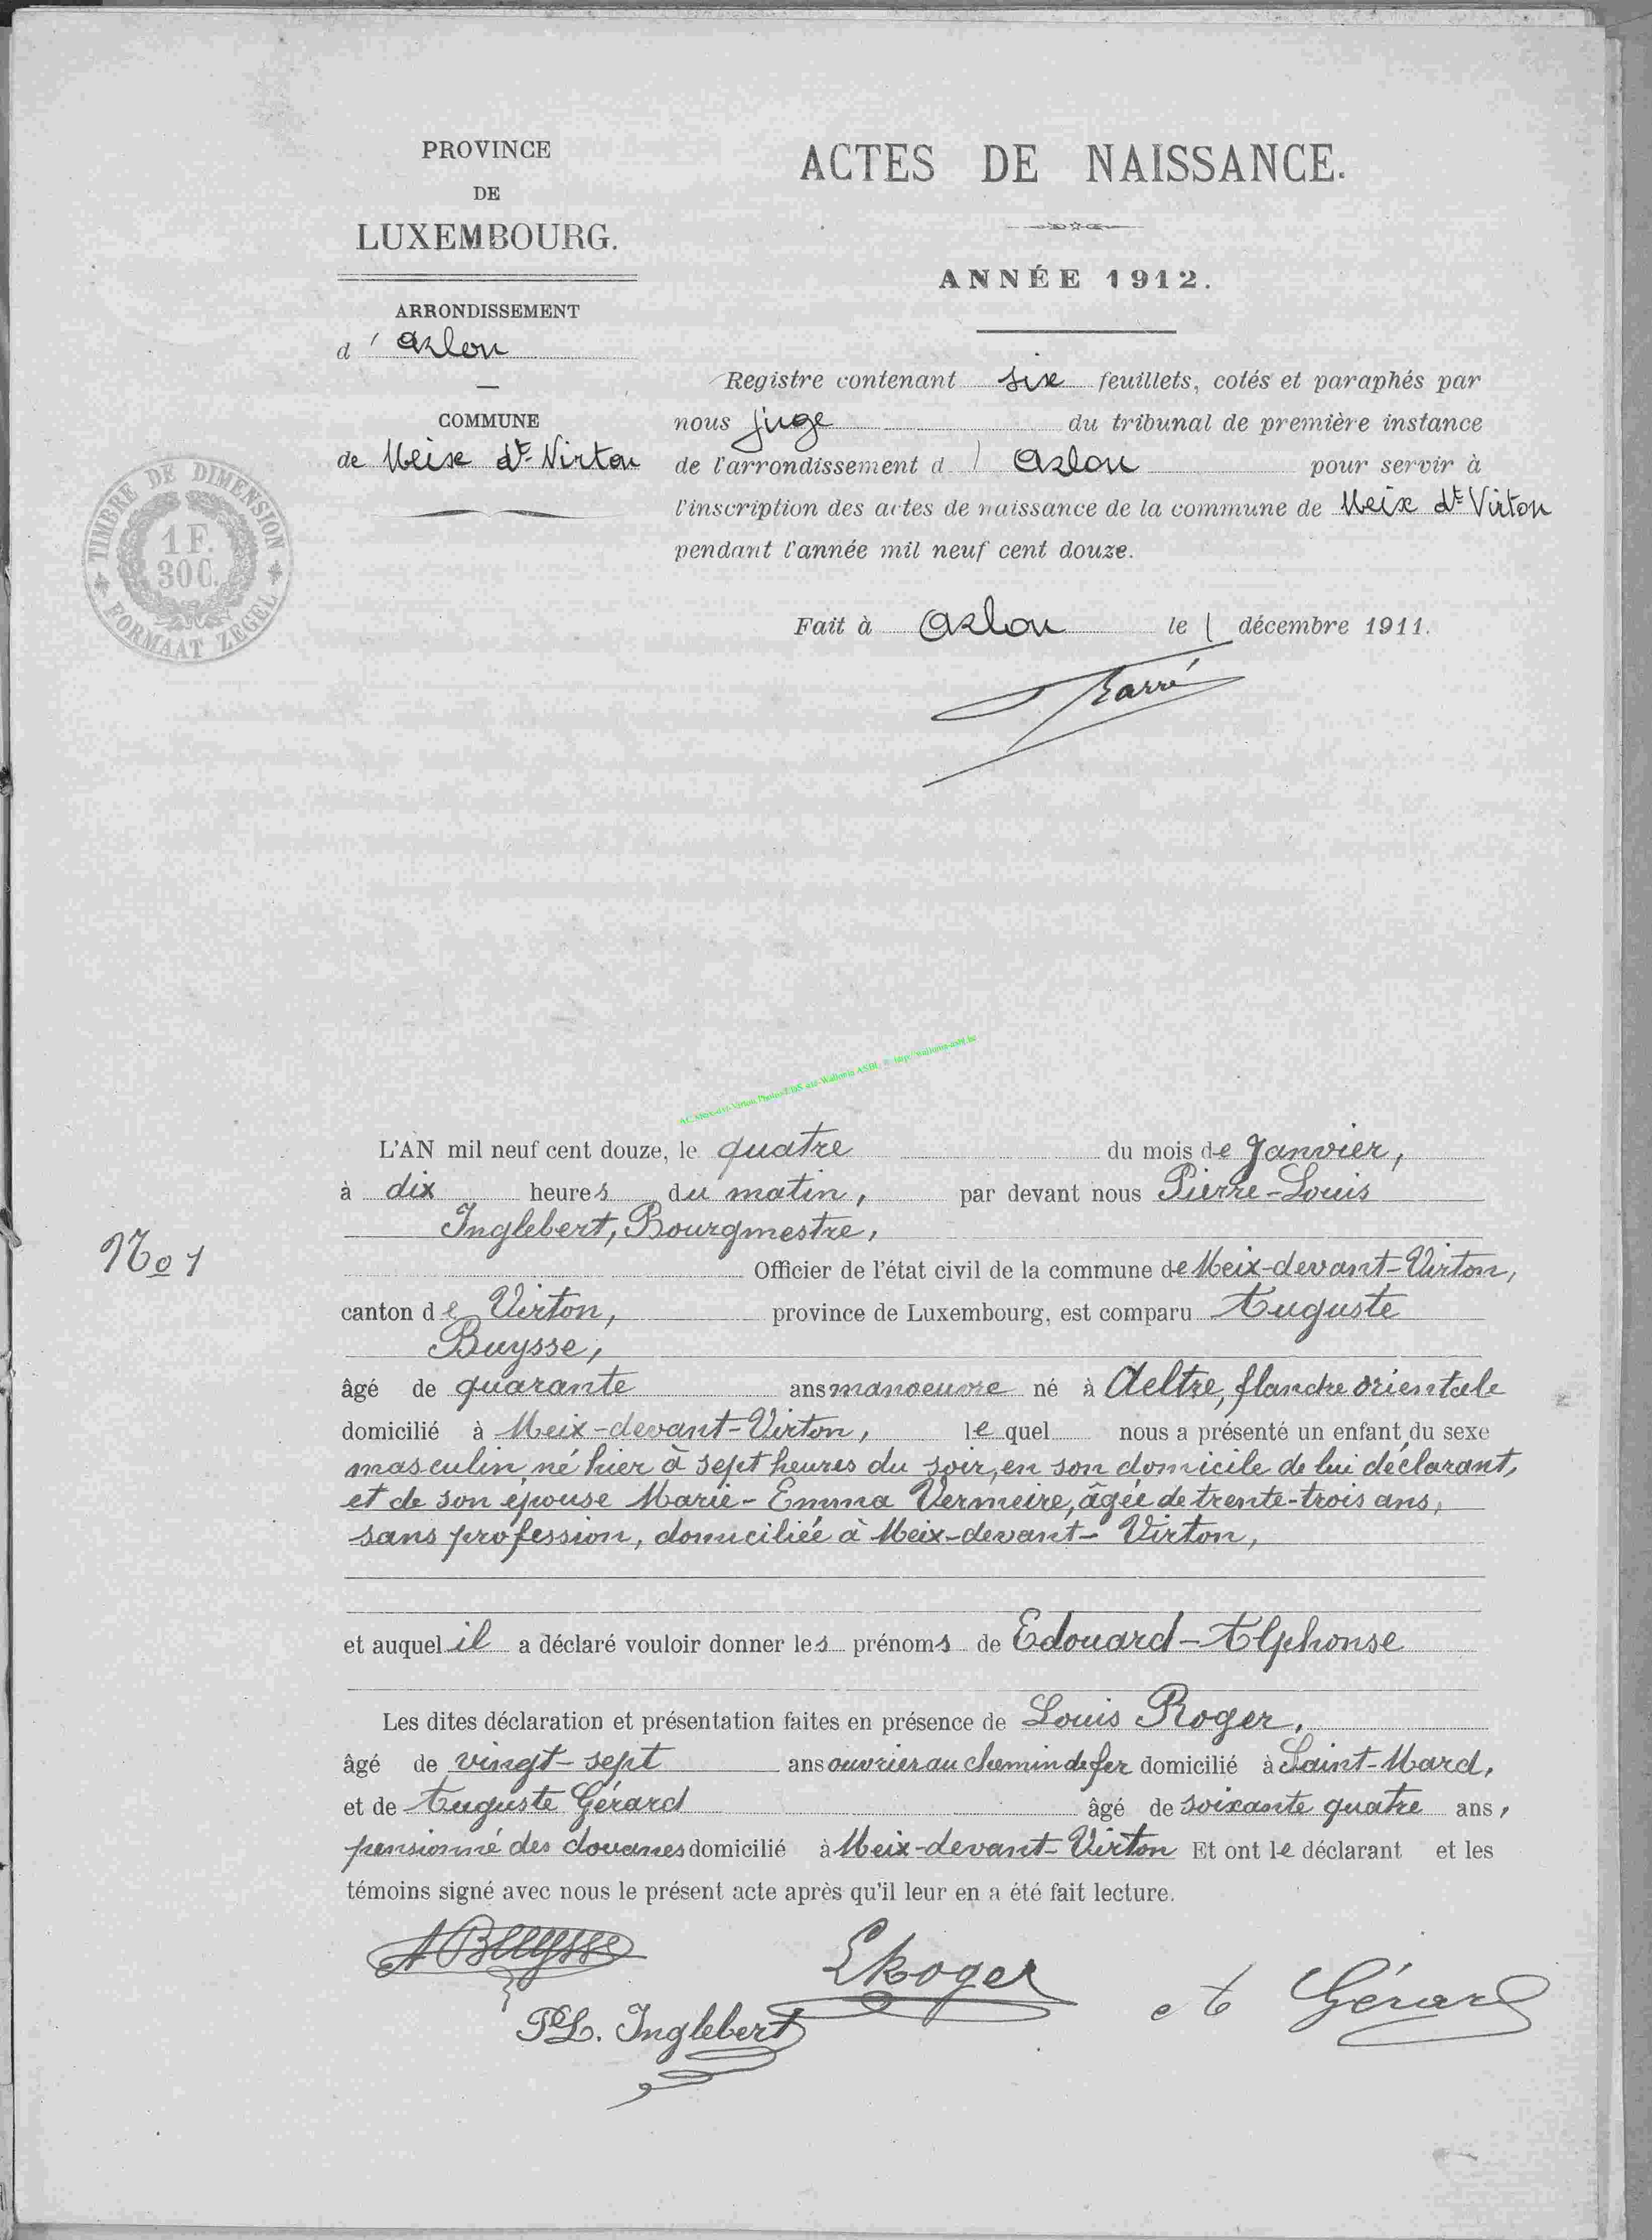 PROVINCE
DE
LUXEMBOURG.
ARRONDISSEMENT
d' Arlon
COMMUNE
de Meix dt Virton
TIMBRE DE DIMENSION
1 F.
30 C.
FORMAAT ZEGEL
ACTES DE NAISSANCE.
ANNÉE 1912.
Registre contenant six feuillets, cotés et paraphés par
nous juge du tribunal de première instance
de l'arrondissement d' Arlon pour servir à
l'inscription des actes de naissance de la commune de Meix dt Virton
pendant l'année mil neuf cent douze.
Fait à Arlon le 1 décembre 1911.
No 1
L'AN mil neuf cent douze, le quatre du mois de Janvier,
à dix heures du matin, par devant nous Pierre-Louis
Inglebert, Bourgmestre,
Officier de l'état civil de la commune de Meix-devant-Virton,
canton de Virton, province de Luxembourg, est comparu Auguste
Buysse,
âgé de quarante ans manoeuvre né à Aeltre, flandre orientale
domicilié à Meix-devant-Virton, lequel nous a présenté un enfant du sexe
masculin né hier à sept heures du soir, en son domicile de lui déclarant,
et de son épouse Marie-Emma Vermeire, âgée de trente-trois ans,
sans profession, domiciliée à Meix-devant-Virton,
et auquel il a déclaré vouloir donner les prénoms de Edouard-Alphonse
Les dites déclaration et présentation faites en présence de Louis Roger,
âgé de vingt-sept ans ouvrier au chemin de fer domicilié à Saint-Mard,
et de Auguste Gérard âgé de soixante quatre ans,
pensionné des douanes domicilié à Meix-devant-Virton Et ont le déclarant et les
témoins signé avec nous le présent acte après qu'il leur en a été fait lecture.
A Buysse
L Roger
A Gérard
P L. Inglebert